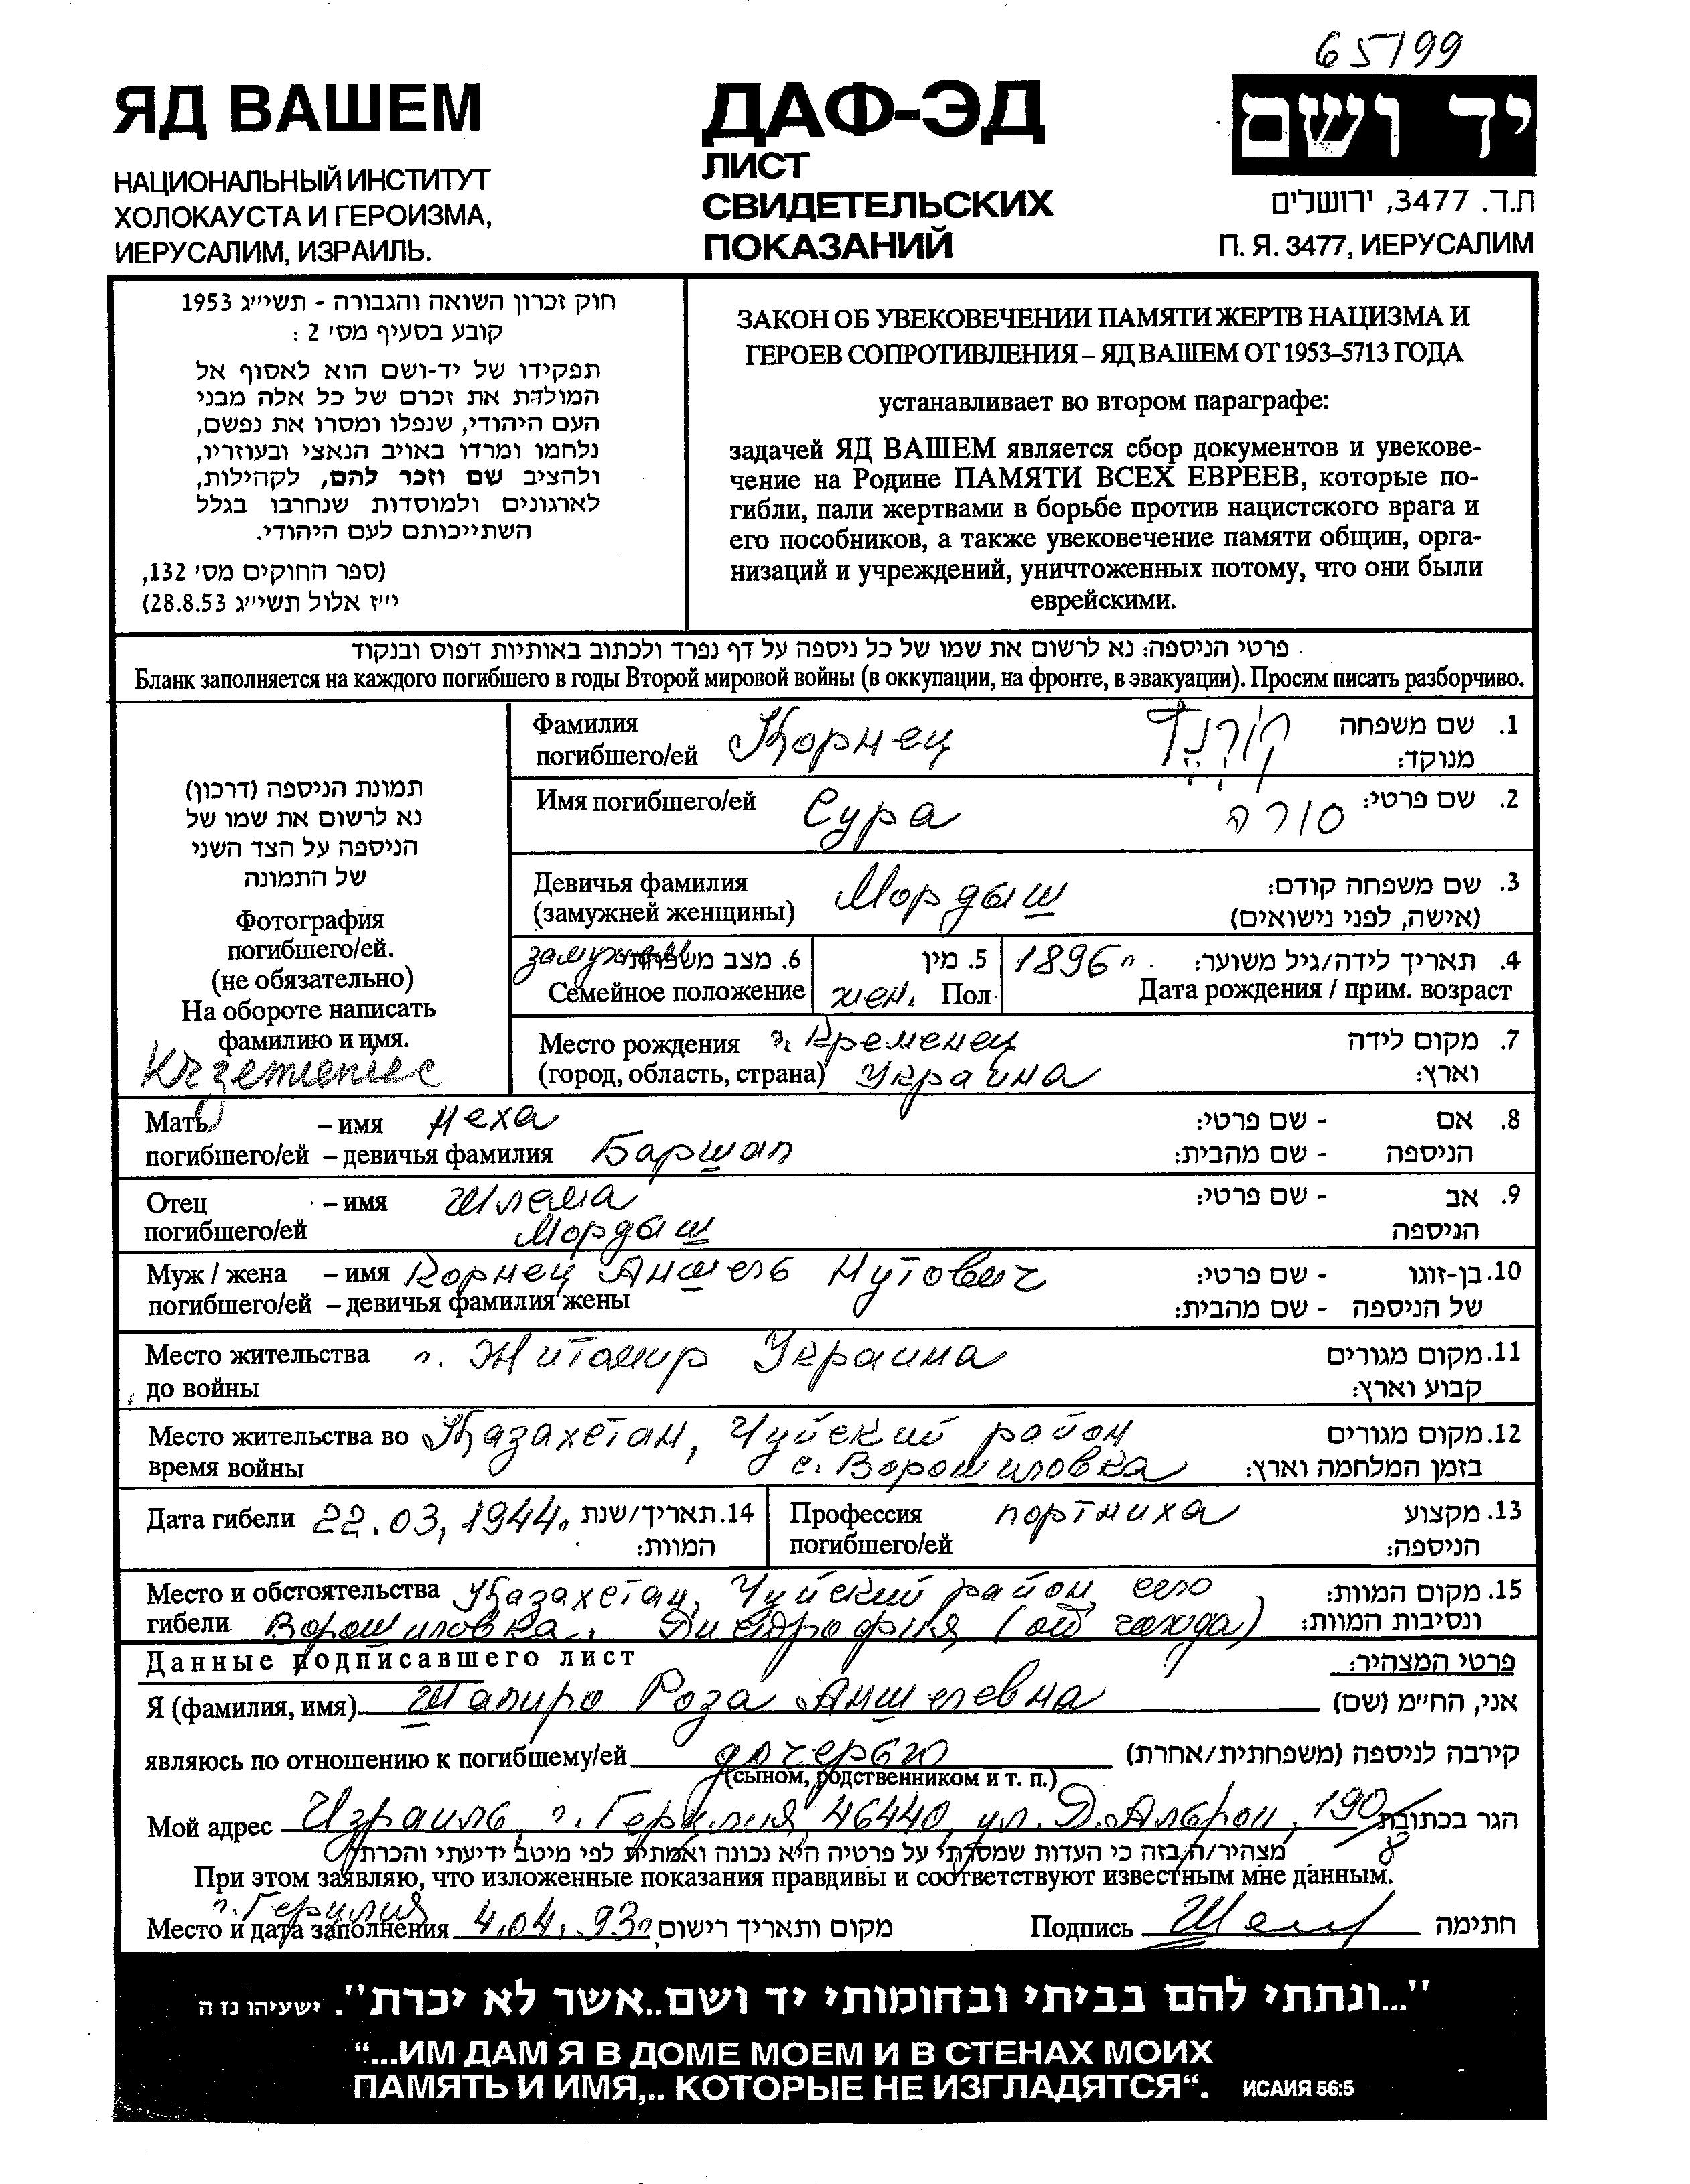 65199
ЯД ВАШЕМ
НАЦИОНАЛЬНЫЙ ИНСТИТУТ
ХОЛОКАУСТА И ГЕРОИЗМА,
ИЕРУСАЛИМ, ИЗРАИЛЬ.
ДАФ-ЭД
ЛИСТ
СВИДЕТЕЛЬСКИХ
ПОКАЗАНИЙ
יד ושם
ת.ד. 3477, ירושלים
П. Я. 3477, ИЕРУСАЛИМ
חוק זכרון השואה והגבורה - תשי״ג 1953
קובע בסעיף מס׳ 2 :
תפקידו של יד-ושם הוא לאסוף אל
המולדת את זכרם של כל אלה מבני
העם היהודי, שנפלו ומסרו את נפשם,
נלחמו ומרדו באויב הנאצי ובעוזריו,
ולהציב שם וזכר להם, לקהילות,
לארגונים ולמוסדות שנחרבו בגלל
השתייכותם לעם היהודי.
(ספר החוקים מס׳ 132,
י״ז אלול תשי״ג 28.8.53)
ЗАКОН ОБ УВЕКОВЕЧЕНИИ ПАМЯТИ ЖЕРТВ НАЦИЗМА И
ГЕРОЕВ СОПРОТИВЛЕНИЯ – ЯД ВАШЕМ ОТ 1953–5713 ГОДА
устанавливает во втором параграфе:
задачей ЯД ВАШЕМ является сбор документов и увекове-
чение на Родине ПАМЯТИ ВСЕХ ЕВРЕЕВ, которые по-
гибли, пали жертвами в борьбе против нацистского врага и
его пособников, а также увековечение памяти общин, орга-
низаций и учреждений, уничтоженных потому, что они были
еврейскими.
פרטי הניספה: נא לרשום את שמו של כל ניספה על דף נפרד ולכתוב באותיות דפוס ובנקוד
Бланк заполняется на каждого погибшего в годы Второй мировой войны (в оккупации, на фронте, в эвакуации). Просим писать разборчиво.
תמונת הניספה (דרכון)
נא לרשום את שמו של
הניספה על הצד השני
של התמונה
Фотография
погибшего/ей.
(не обязательно)
На обороте написать
фамилию и имя.
Krzemieniec
Фамилия Корнец 1. שם משפחה
погибшего/ей מנוקד:
Имя погибшего/ей Сура סורה 2. שם פרטי:
Девичья фамилия Мордыш 3. שם משפחה קודם:
(замужней женщины) (אישה, לפני נישואים)
замужем 6. מצב משפחתי 5. מין 1896 г. 4. תאריך לידה/גיל משוער:
Семейное положение жен. Пол Дата рождения / прим. возраст
Место рождения г. Кременец 7. מקום לידה
(город, область, страна) Украина וארץ:
Мать – имя Неха 8. אם - שם פרטי:
погибшего/ей – девичья фамилия Баршап הניספה - שם מהבית:
Отец – имя Шлема 9. אב - שם פרטי:
погибшего/ей Мордыш הניספה
Муж / жена – имя Корнец Аншель Нутович 10. בן-זוגו - שם פרטי:
погибшего/ей – девичья фамилия жены של הניספה - שם מהבית:
Место жительства г. Житомир Украина 11. מקום מגורים
до войны קבוע וארץ:
Место жительства во Казахстан, Чуйский район 12. מקום מגורים
время войны с. Ворошиловка בזמן המלחמה וארץ:
Дата гибели 22.03.1944. 14. תאריך/שנת Профессия портниха 13. מקצוע
המוות: погибшего/ей הניספה:
Место и обстоятельства Казахстан, Чуйский район, село 15. מקום המוות:
гибели Ворошиловка. Дистрофия (от голода) ונסיבות המוות:
Данные подписавшего лист פרטי המצהיר:
Я (фамилия, имя) Шапиро Роза Аншелевна אני, הח״מ (שם)
являюсь по отношению к погибшему/ей дочерью קירבה לניספה (משפחתית/אחרת)
(сыном, родственником и т. п.)
Мой адрес Израиль г. Герцлия 46440, ул. 190/8 הגר בכתובת
מצהיר/ה בזה כי העדות שמסרתי על פרטיה היא נכונה ואמתית לפי מיטב ידיעתי והכרתי
При этом заявляю, что изложенные показания правдивы и соответствуют известным мне данным.
г. Герцлия
Место и дата заполнения 4.04.93 מקום ותאריך רישום Подпись חתימה
"...ונתתי להם בביתי ובחומותי יד ושם..אשר לא יכרת". ישעיהו נז ה
“...ИМ ДАМ Я В ДОМЕ МОЕМ И В СТЕНАХ МОИХ
ПАМЯТЬ И ИМЯ,.. КОТОРЫЕ НЕ ИЗГЛАДЯТСЯ“. ИСАИЯ 56:5